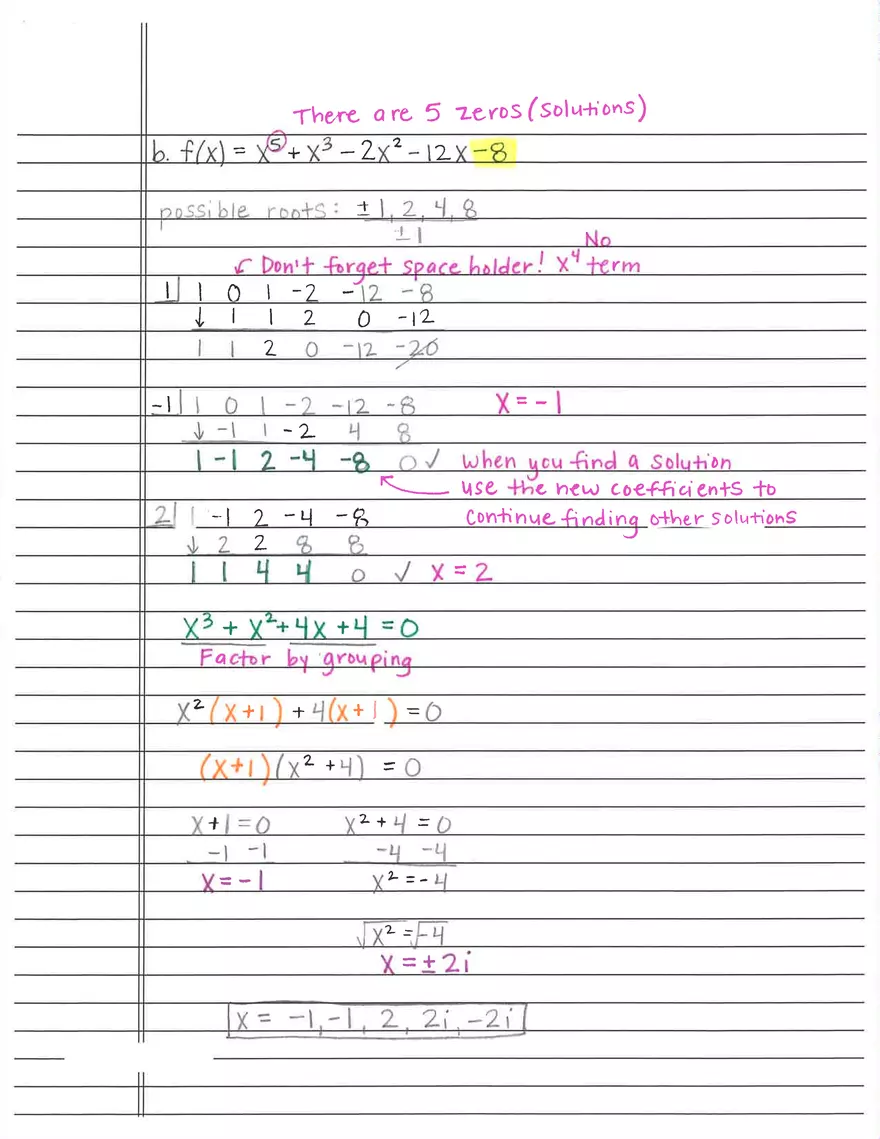 There are 5 zeros (solutions)
b. f(x) = x⁵ + x³ - 2x² - 12x - 8
possible roots: ± 1, 2, 4, 8
± 1
No
Don't forget space holder! x⁴ term
1| 1 0 1 -2 -12 -8
↓ 1 1 2 0 -12
1 1 2 0 -12 -20
-1| 1 0 1 -2 -12 -8 x = -1
↓ -1 1 -2 4 8
1 -1 2 -4 -8 0 ✓ when you find a solution
use the new coefficients to
2| 1 -1 2 -4 -8 continue finding other solutions
↓ 2 2 8 8
1 1 4 4 0 ✓ x = 2
x³ + x² + 4x + 4 = 0
Factor by grouping
x²(x+1) + 4(x+1) = 0
(x+1)(x² + 4) = 0
x + 1 = 0 x² + 4 = 0
-1 -1 -4 -4
x = -1 x² = -4
√x² = √-4
x = ± 2i
x = -1, -1, 2, 2i, -2i